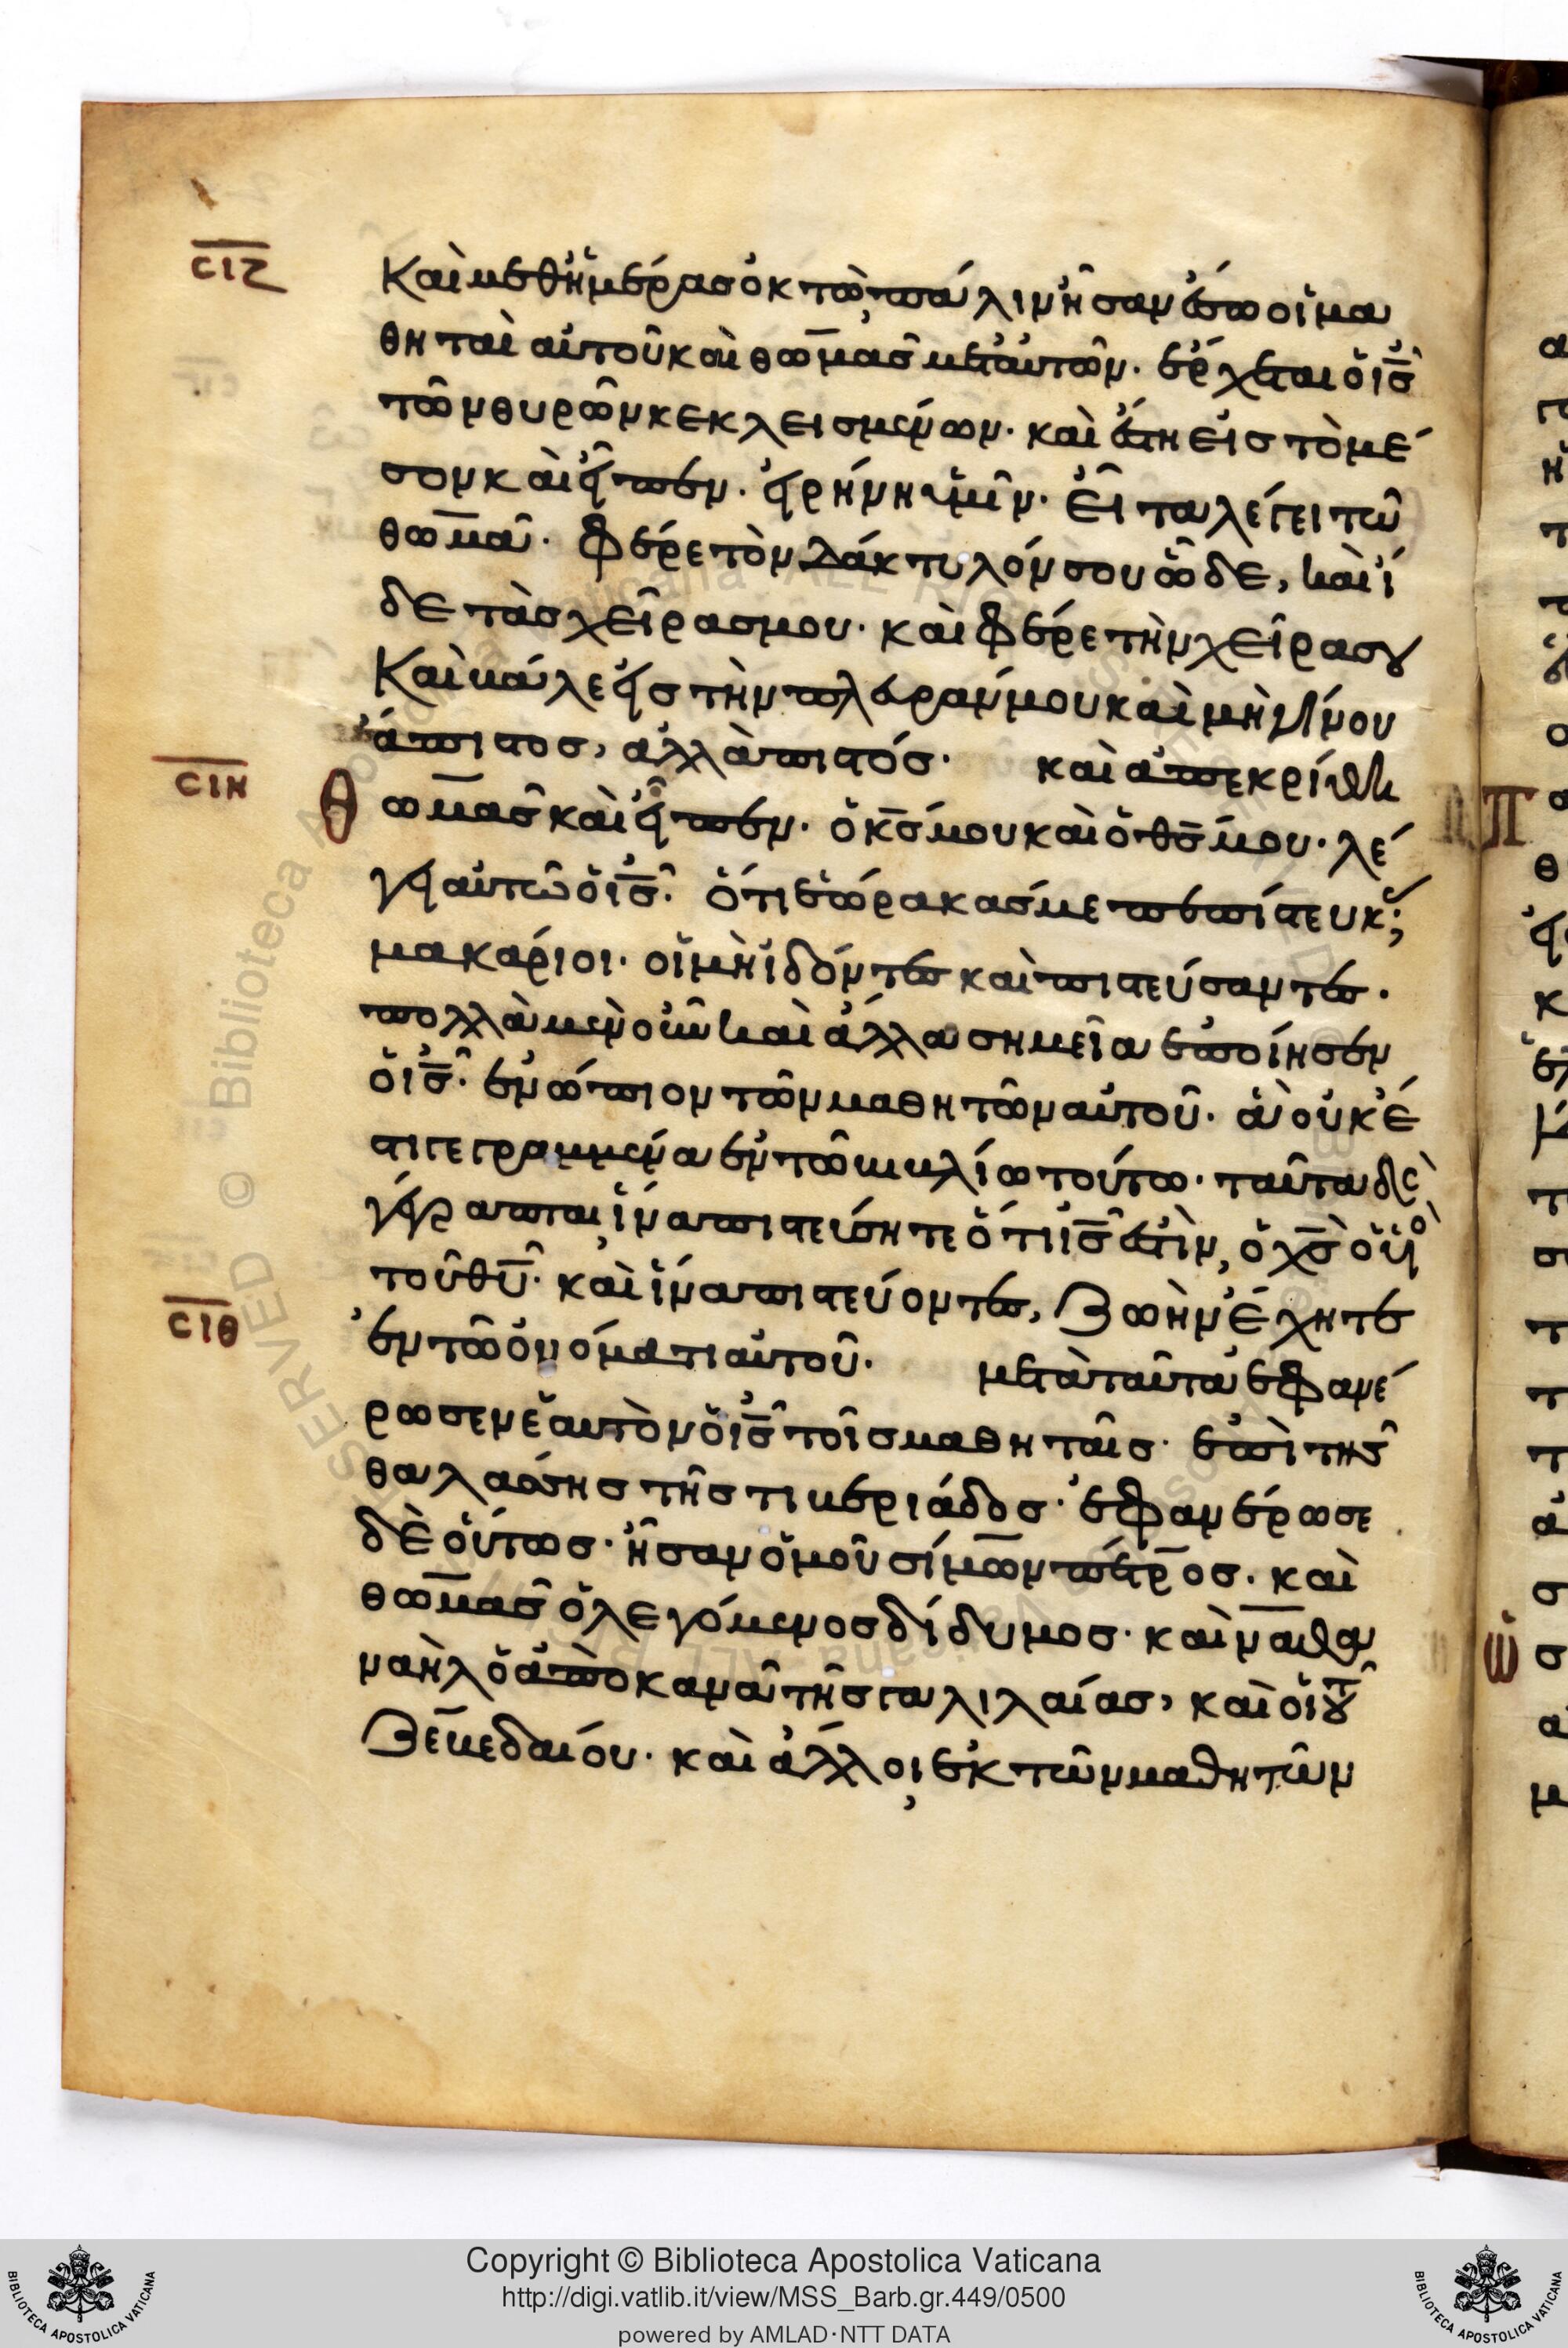 σιζ
Καὶ μεθ ἡμέρας ὀκτὼ, πάλιν ἦσαν ἔσω οἱ μα
θηταὶ αὐτοῦ καὶ θωμᾶς μετ αὐτῶν. ἔρχεται ὁ ις
τῶν θυρῶν κεκλεισμένων. καὶ ἔστη εἰς τὸ μέ
σον καὶ εἶπεν. εἰρήνη ὑμῖν. εἶτα λέγει τῶ
θωμᾶ. φέρε τὸν δάκτυλόν σου ὧδε, καὶ ἴ
δε τὰς χεῖρας μου. καὶ φέρε τὴν χεῖρα σου
Καὶ βάλε εἰς τὴν πλευράν μου καὶ μὴ γίνου
ἄπιστος, ἀλλὰ πιστός. καὶ ἀπεκρίθη
σιη
Θωμᾶς καὶ εἶπεν. ὁ κς μου καὶ ὁ θς μου. λέ
γει αὐτῶ ὁ ις. ὅτι ἑώρακας με πεπίστευκας;
μακάριοι. οἱ μὴ ἰδόντες καὶ πιστεύσαντες.
πολλὰ μὲν οὖν καὶ ἄλλα σημεῖα ἐποίησεν
ὁ ις. ἐνώπιον τῶν μαθητῶν αὐτοῦ. ἃ οὐκ έ
στι γεγραμμένα ἐν τῶ βιβλίω τούτω. ταῦτα δὲ
γέγραπται, ἵνα πιστεύσητε ὅτι ις ἐστὶν, ὁ χς ὁ υἱὸς
τοῦ θυ. καὶ ἵνα πιστεύοντες, ζωὴν ἔχητε
ἐν τῶ ὀνόματι αὐτοῦ. μετὰ ταῦτα ἐφανέ
σιθ
ρωσεν ἑαυτὸν ὁ ις τοῖς μαθηταῖς. ἐπὶ τῆς
θαλάσσης τῆς τιβεριάδος. ἐφανέρωσε
δὲ οὕτως. ἦσαν ὁμοῦ σίμων πέτρος. καὶ
θωμᾶς ὁ λεγόμενος δίδυμος. καὶ ναθα
ναὴλ ὁ ἀπὸ κανᾶ τῆς γαλιλαίας, καὶ οἱ τοῦ
ζεβεδαίου. καὶ ἄλλοι ἐκ τῶν μαθητῶν
Copyright © Biblioteca Apostolica Vaticana
http://digi.vatlib.it/view/MSS_Barb.gr.449/0500
powered by AMLAD·NTT DATA
BIBLIOTECA APOSTOLICA VATICANA
BIBLIOTECA APOSTOLICA VATICANA